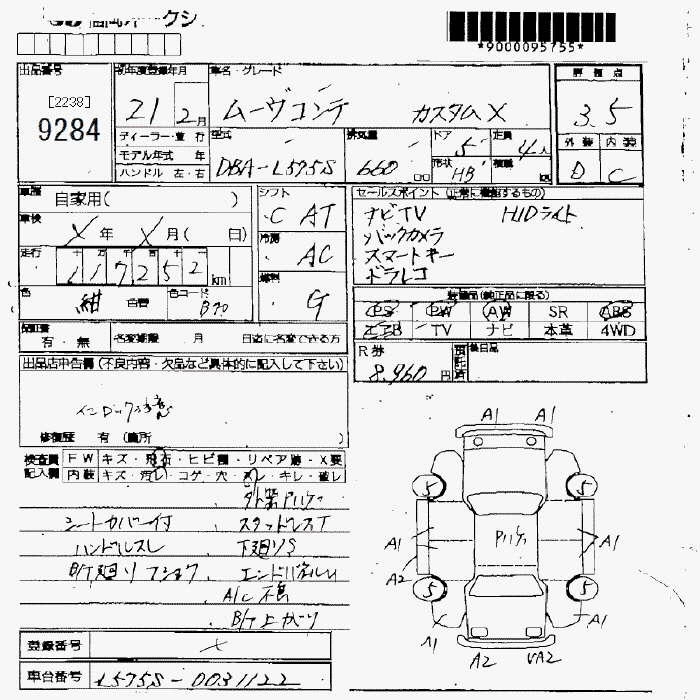 *9000095755*
出品番号
[2238]
9284
初年度登録年月
21 2月
ディーラー・並行
モデル年式 年
ハンドル 左・右
車名・グレード
ムーヴコンテ カスタムX
型式
DBA-L575S
排気量
660 cc
ドア
5
形状
HB
定員
4人
積載 kg
評価点
3.5
外装 内装
D C
車歴
自家用( )
車検
X年 X月( 日)
走行
117252 km
色
紺 色替
色コード
B70
シフト
C AT
冷房
AC
燃料
G
セールスポイント (正常に機能するもの)
ナビTV HIDライト
バックカメラ
スマートキー
ドラレコ
装備品(純正品に限る)
PS PW AW SR ABS
エアB TV ナビ 本革 4WD
保証書
有・無
名変期限 月 日迄に名変できる方
R券
8,960円
預託済
後日品
出品店申告欄(不良内容・欠品など具体的に記入して下さい)
インロック注意
修復歴 有 (箇所 )
検査員記入欄
FW キズ・飛石・ヒビ割・リペア跡・X要
内装 キズ・汚レ・コゲ・穴・スレ・キレ・破レ
外装PリケA
シートカバー付 スタッドレスT
ハンドルスレ 下廻りS
A/C不良
登録番号 X
車台番号 L575S-0031122
A1 A1
5 5
A1 A1
A2
Pリケ
5 5
A1 A1
A2 YA2